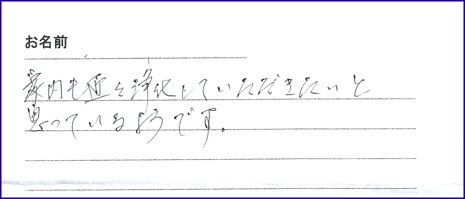 お名前
家内も血を浄化していただきたいと
思っているようです。